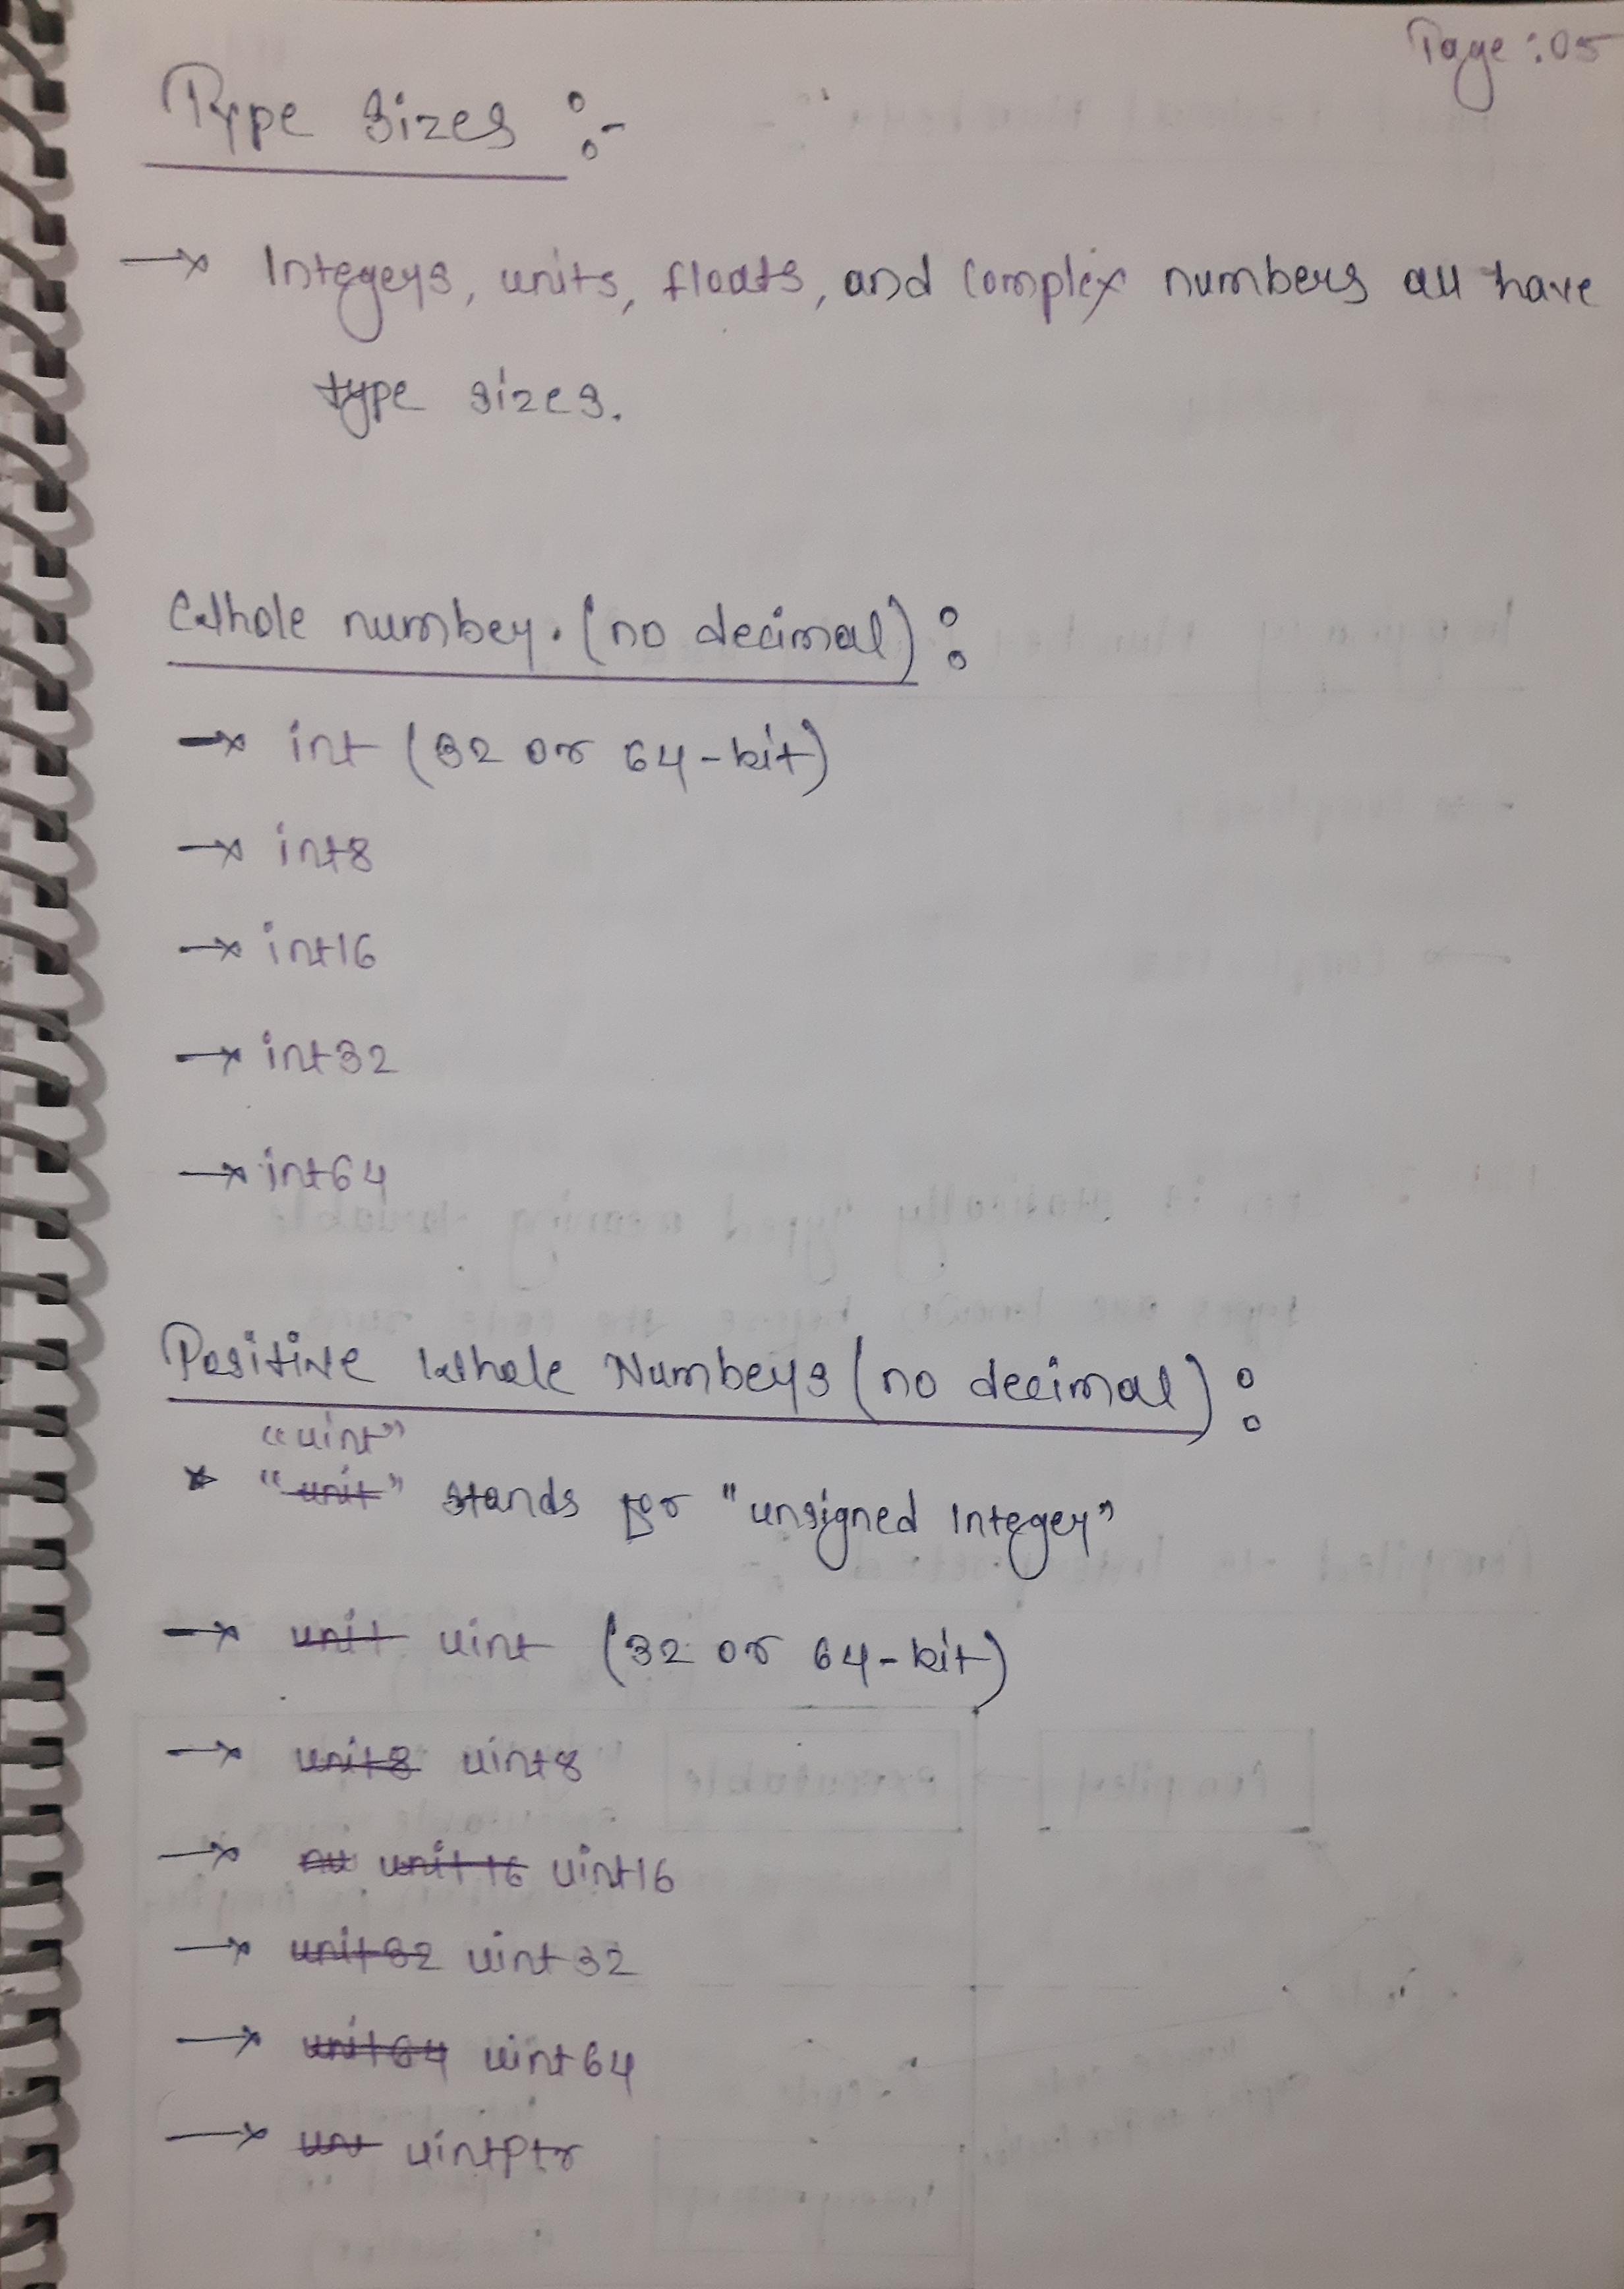 Page : 05
Type Sizes :-
→ Integers, units, floats, and Complex numbers all have
type sizes.
Whole number. (no decimal) :
→ int (32 or 64-bit)
→ int8
→ int16
→ int32
→ int64
Positive Whole Numbers (no decimal) :
"uint"
* "unit" stands for "unsigned Integer"
→ unit uint (32 or 64-bit)
→ unit8 uint8
→ nu unit16 uint16
→ unit32 uint32
→ unit64 uint64
→ uintPtr